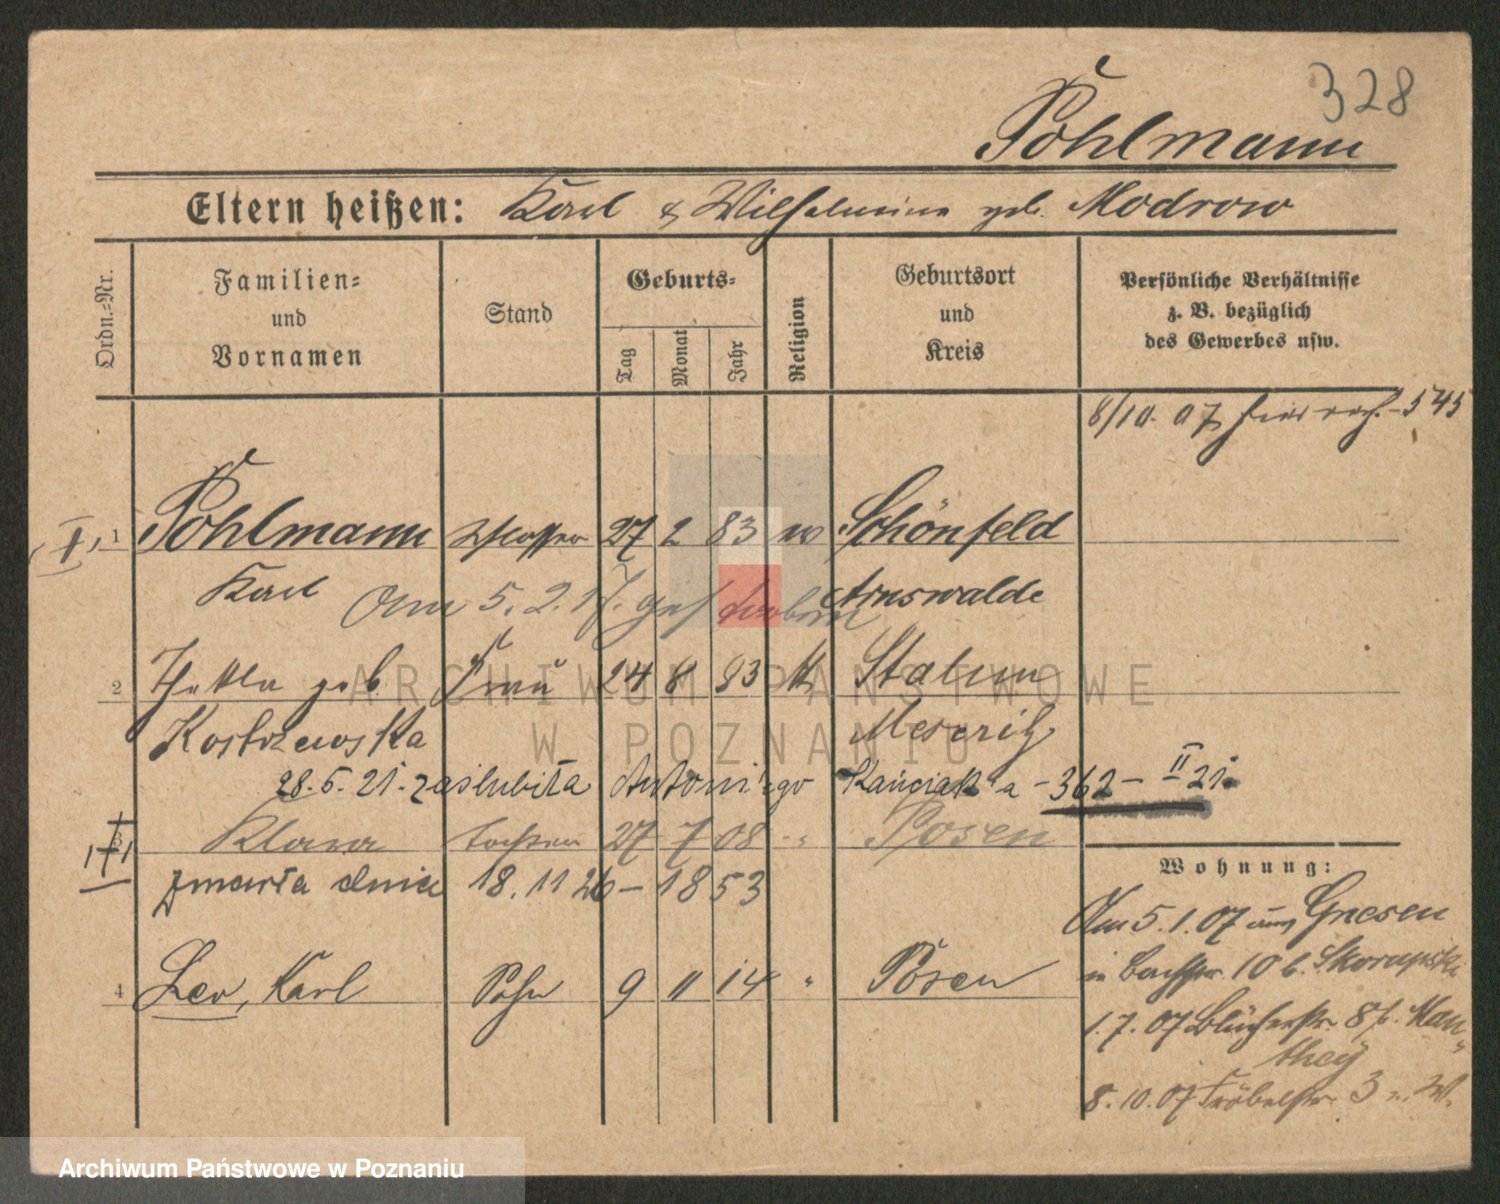 328
Pohlmann
Eltern heißen: Karl & Wilhelmine geb. Modrow
Ordn.=Nr.
Familien=
und
Vornamen
Stand
Geburts=
Tag
Monat
Jahr
Religion
Geburtsort
und
Kreis
Persönliche Verhältnisse
z. B. bezüglich
des Gewerbes usw.
8/10. 07 545
1 Pohlmann Schlosser 27 2 83 Schönfeld
Karl Arnswalde
Am 5. 2. 17. gestorben
2 Thekla geb. Frau 24 8 83 k Stalun
Kostrzewska Meseritz
28.5.21. zaślubiła Antoniego Kańciak'a -362- II 21.
3 Klara Tochter 27 7 08 " Posen
zmarła dnia 18.11 26 - 1853
4 Leo, Karl Sohn 9 11 14 " Posen
Wohnung:
Am 5.1.07 aus Gnesen
in Bachstr. 10 b. Skorupski
1.7.07 Blücherstr. 8 b. Man-
they
8.10.07 Fröbelstr. 3 n. W.
ARCHIWUM PAŃSTWOWE
W POZNANIU
Archiwum Państwowe w Poznaniu